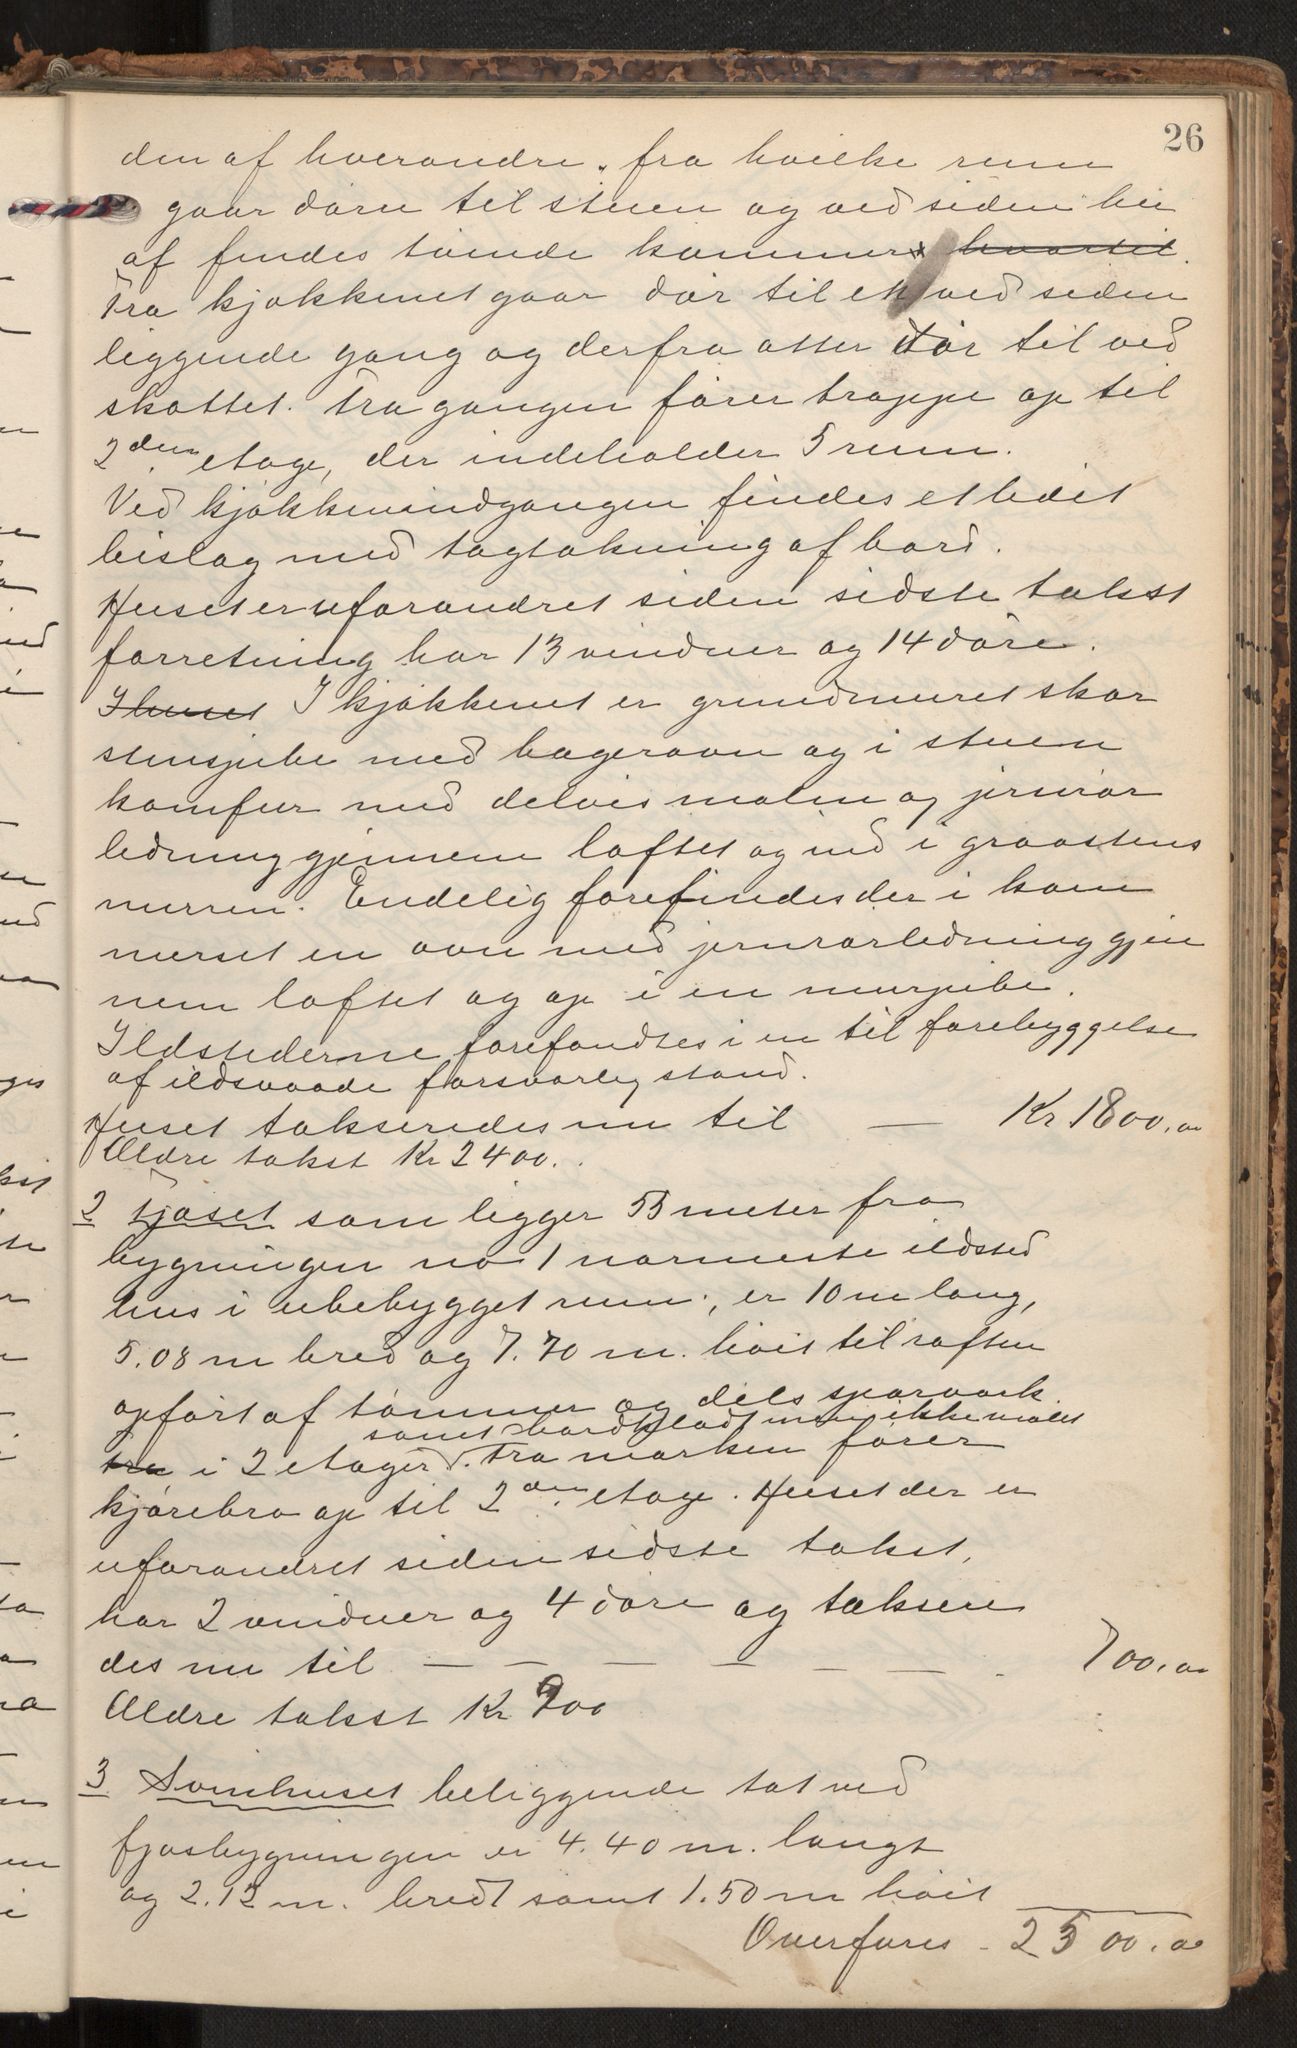 26
den af hverandre, fra hvilke rum
gaar døre til stuen og ved siden her
af findes tvende kammers hvortil.
Fra kjøkkenet gaar dør til et ved siden
liggende gang og derfra atter dør til ved
skottet. Fra gangen fører trappe op til
2den etage, der indeholder 5 rum.
Ved kjøkkenindgangen findes et lidet
bislag med tagtækning af bord.
Huset er uforandret siden sidste takst
forretning har 13 vinduer og 14 døre.
I huset I kjøkkenet er grundmuret skor
stenspibe med bagerovn og i stuen
komfur med delvis malm og jernrør
ledning gjennem loftet og ind i graastens
murren. Endelig forefindes der i kam
merset en ovn med jernrørledning gjen
nem loftet og op i en murpibe.
Ildstederne forefandtes i en til forebyggelse
af ildsvaade forsvarlig stand.
Huset takseredes nu til — Kr 1800,00
Ældre takst Kr 2400.
2 Fjøset som ligger 53 meter fra
bygningen no 1 nærmeste ildsted
hus i ubebygget rum, er 10 m lang,
5.08 m bred og 7.70 m. høit til raften
opført af tømmer og dels sparværk
samt bordklædt men ikke malet
tra i 2 etager. Fra marken fører
kjørebro op til 2den etage. Huset der er
uforandret siden sidste takst,
har 2 vinduer og 4 døre og taksere
des nu til — — — — — — 700,00
Ældre takst Kr 900
3 Svinhuset beliggende tæt ved
fjøsbygningen er 4.40 m. langt
og 2.13 m. bredt samt 1.50 m høit
Overføres - 2500.00